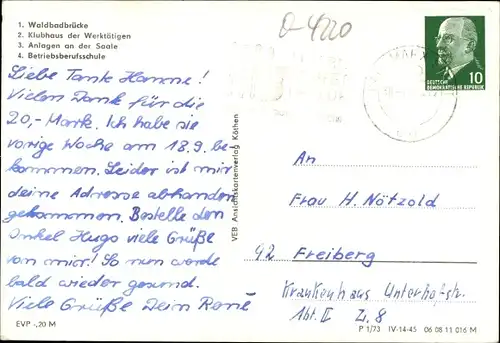 1. Waldbadbrücke
2. Klubhaus der Werktätigen
3. Anlagen an der Saale
4. Betriebsberufsschule
0-4220
DEUTSCHE
DEMOKRATISCHE REPUBLIK
10
Liebe Tante Hanne!
Vielen Dank für die
20,- Mark. Ich habe sie
vorige Woche am 18.9. be-
kommen. Leider ist mir
deine Adresse abhanden
gekommen. Bestelle den
Onkel Hugo viele Grüße
von mir! So nun werde
bald wieder gesund.
Viele Grüße Dein René
VEB Ansichtskartenverlag Köthen
An
Frau H. Nötzold
92 Freiberg
Krankenhaus Unterhofstr.
Abt. II Zi. 8
EVP -,20 M
P 1/73 IV-14-45 06 08 11 016 M